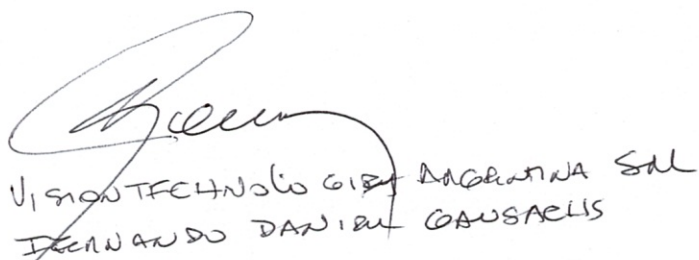 VISION TECHNOLOGIES ARGENTINA SRL
FERNANDO DANIEL